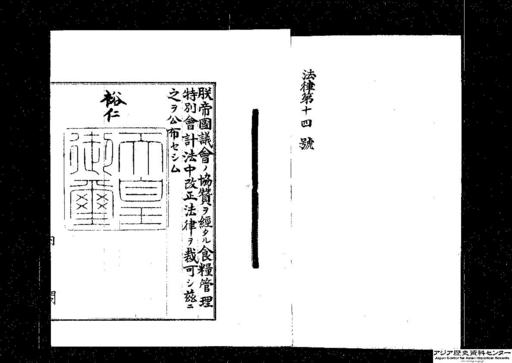 法律第十四號
朕帝國議會ノ協贊ヲ經タル食糧管理
特別會計法中改正法律ヲ裁可シ茲ニ
之ヲ公布セシム
裕仁
天皇御璽
アジア歴史資料センター
Japan Center for Asian Historical Records